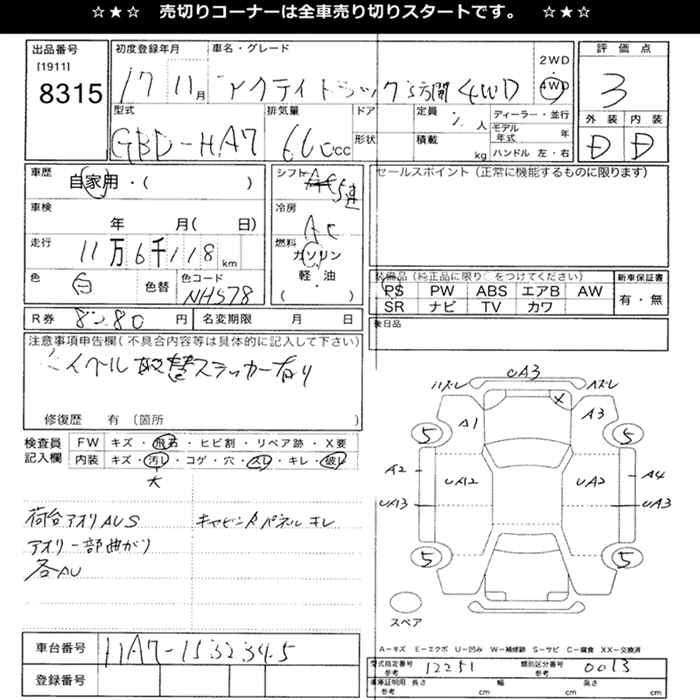 ☆★☆ 売切りコーナーは全車売り切りスタートです。 ☆★☆
出品番号
[1911]
8315
初度登録年月
17 11月
車名・グレード
アクティトラック3方開 4WD
2WD
4WD
評価点
3
型式
GBD-HA7
排気量
660cc
ドア
形状
定員 2人
積載 kg
ディーラー・並行
モデル年式 年
ハンドル 左・右
外装 内装
D D
車歴
自家用・( )
車検
年 月( 日)
走行
11万6千118km
色
白
色替
色コード
NH578
シフト
5速
冷房
AC
燃料
ガソリン
軽・油
・( )
セールスポイント(正常に機能するものに限ります)
装備品(純正品に限り○をつけてください)
PS PW ABS エアB AW
SR ナビ TV カワ
新車保証書
有・無
後日品
R券 8280円
名変期限 月 日
注意事項申告欄(不具合内容等は具体的に記入して下さい)
取替ステッカー有り
修復歴 有 (箇所 )
検査員
記入欄
FW キズ・飛石・ヒビ割・リペア跡・X要
内装 キズ・汚レ・コゲ・穴・スレ・キレ・破レ
大
荷台アオリAUS
アオリ一部曲がり
各AU
UA3
ハズレ
Aズレ
X
A1
A3
5
5
A2
UA12
UA2
A4
UA13
UA3
5
5
スペア
A-キズ E-エクボ U-凹み W-補修跡 S-サビ C-腐食 XX-交換済
車台番号
HA7-1532345
登録番号
型式指定番号
参考
12251
類別区分番号
参考
0013
車庫証明用
参考
長さ cm 幅 cm 高さ cm